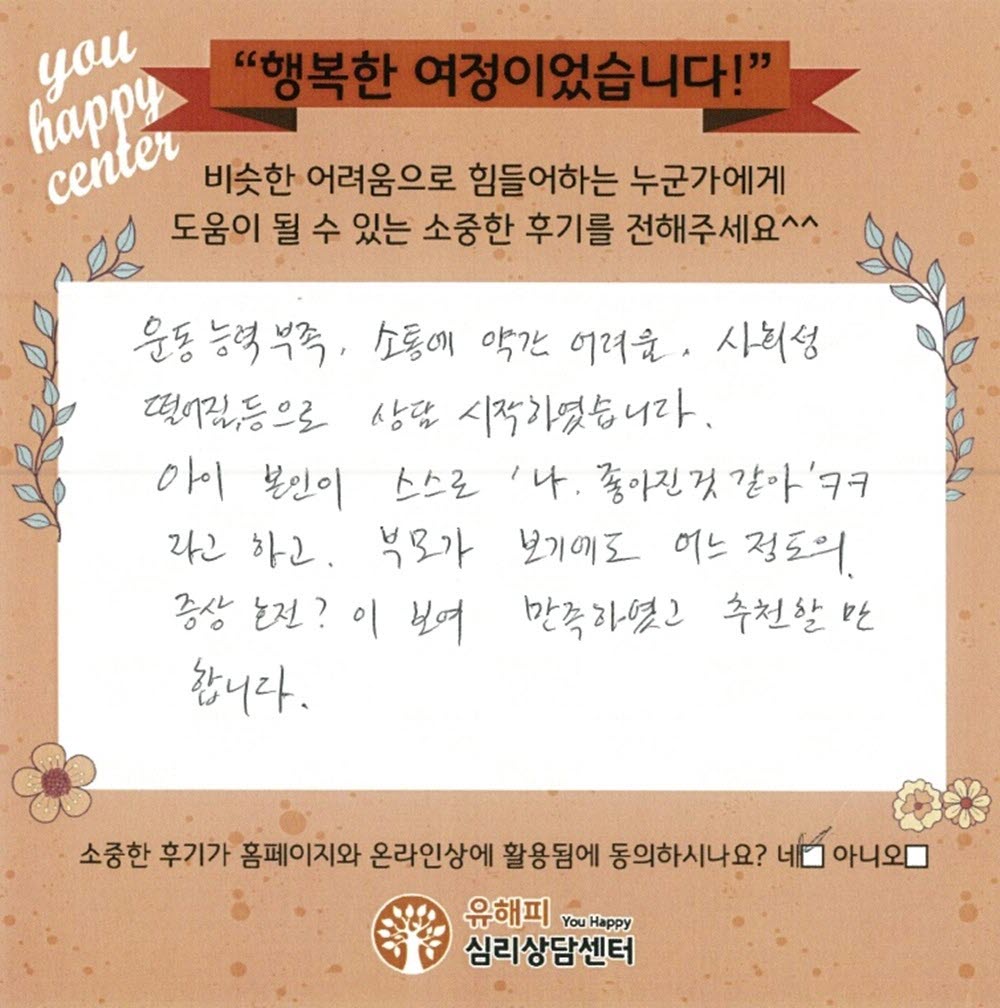 you
happy
center
“행복한 여정이었습니다!”
비슷한 어려움으로 힘들어하는 누군가에게
도움이 될 수 있는 소중한 후기를 전해주세요^^
운동능력부족, 소통에 약간 어려움, 사회성
떨어짐,등으로 상담 시작하였습니다.
아이 본인이 스스로 '나, 좋아진것 같아'ㅋㅋ
라고 하고, 부모가 보기에도 어느정도의
증상 호전? 이 보여 만족하였고 추천할 만
합니다.
소중한 후기가 홈페이지와 온라인상에 활용됨에 동의하시나요? 네 아니오
유해피 You Happy
심리상담센터